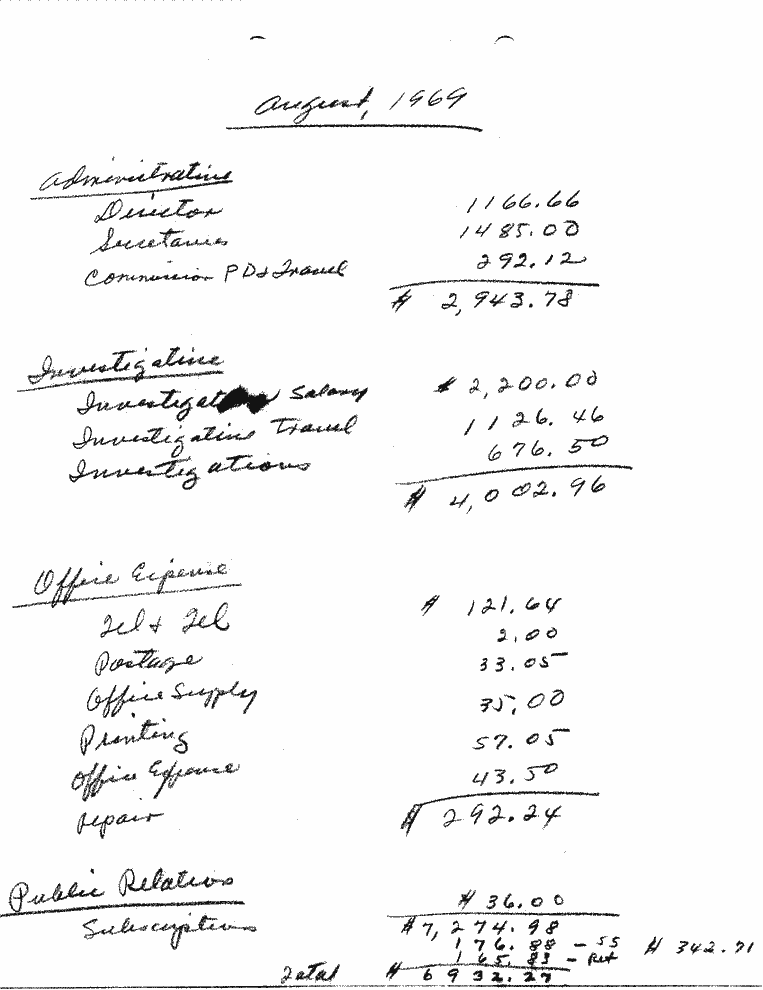 August, 1969
Administrative
Director 1166.66
Secretaries 1485.00
Commission PD & Travel 292.12
$ 2,943.78
Investigative
Investigat Salary $ 2,200.00
Investigative Travel 1126.46
Investigations 676.50
$ 4,002.96
Office Expense
Tel & Tel $ 121.64
Postage 2.00
Office Supply 33.05
Printing 35.00
Office Expense 57.05
repair 43.50
$ 292.24
Public Relations
Subscriptions $ 36.00
$ 7,274.98
176.88 - SS $ 342.71
165.83 - Ret
Total $ 6932.27